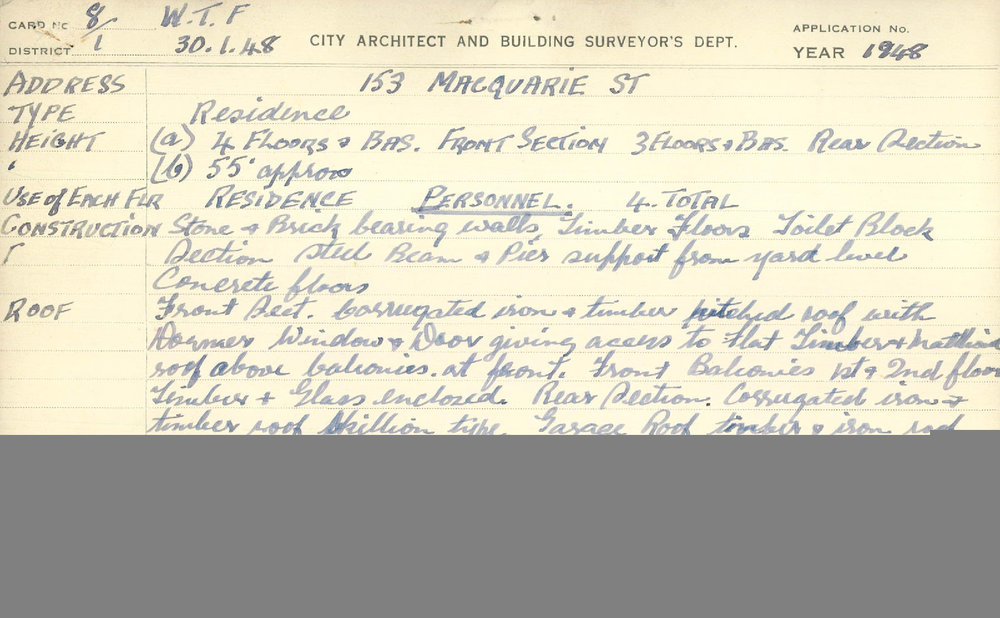 CARD No 8/1 W.T.F
DISTRICT 30.1.48 CITY ARCHITECT AND BUILDING SURVEYOR'S DEPT. APPLICATION No.
YEAR 1948
ADDRESS 153 MACQUARIE ST
TYPE Residence
HEIGHT (a) 4 FLOORS & BAS. FRONT SECTION 3 FLOORS & BAS. Rear Section
" (b) 55' approx
USE of EACH FLR RESIDENCE PERSONNEL. 4. TOTAL
CONSTRUCTION Stone & Brick bearing walls, Timber Floors Toilet Block
Section Steel Beam & Pier support from yard level
Concrete floors
ROOF Front Sect. Corrugated iron & timber pitched roof with
Dormer Window & Door giving access to flat Timber &
roof above balconies. at front. Front Balconies 1st & 2nd floor
Timber & Glass enclosed. Rear Section. Corrugated iron &
timber roof Skillion type. Garage Roof timber & iron